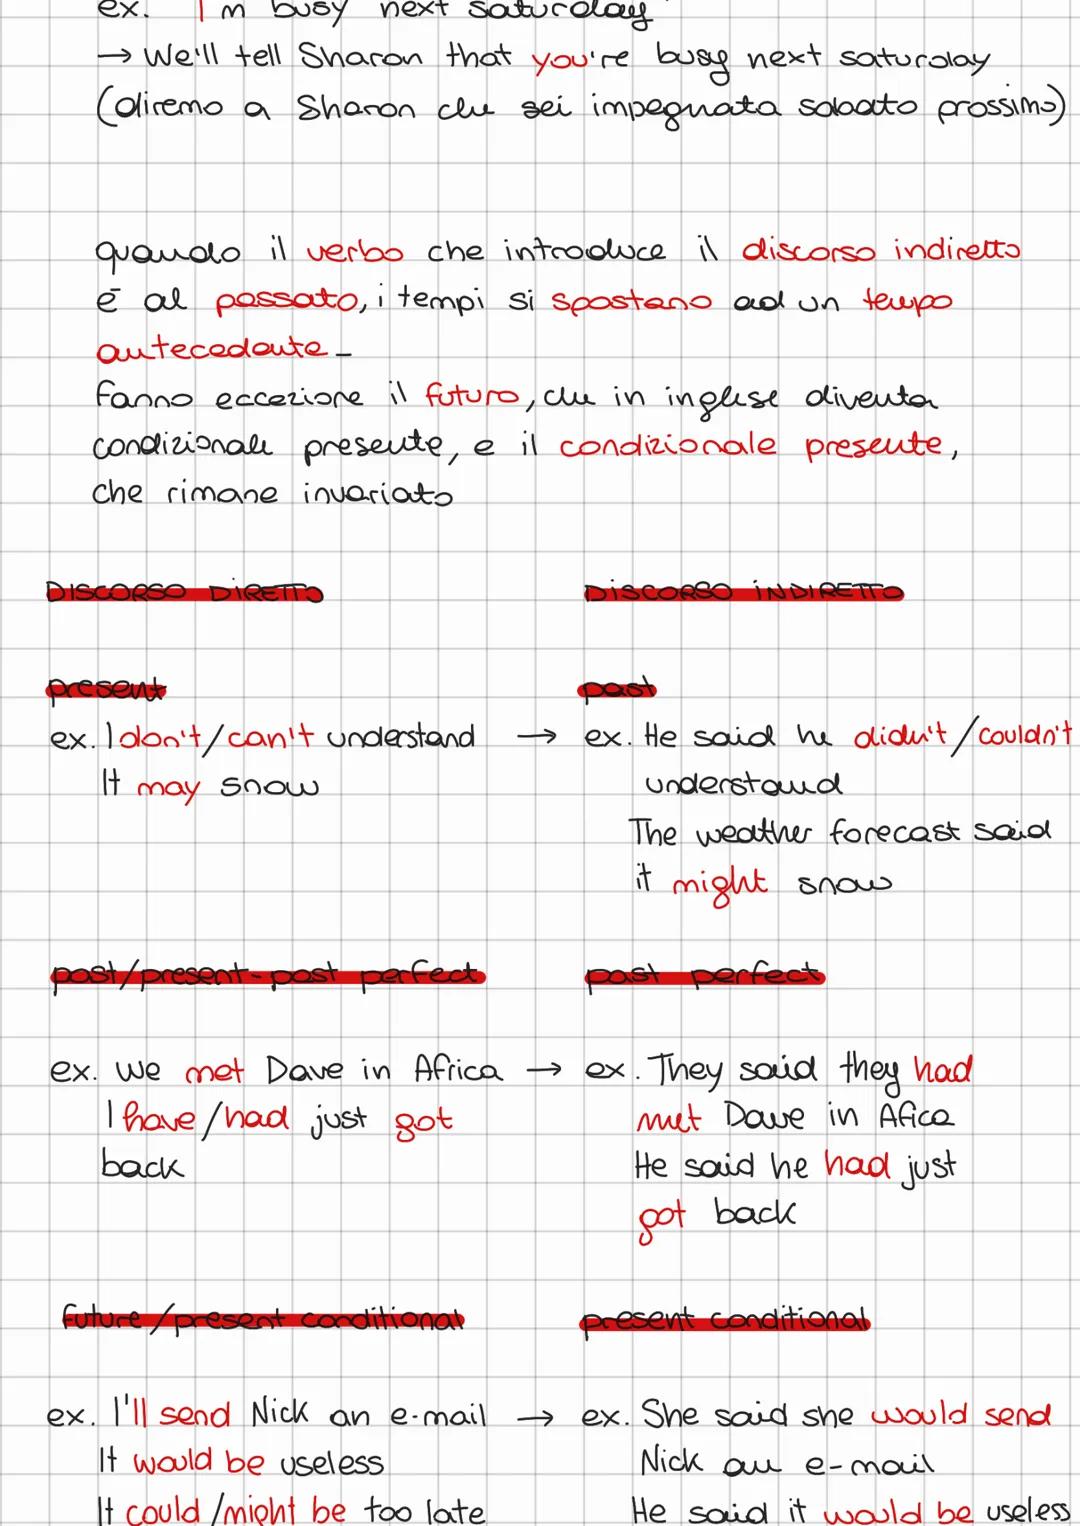 ex. I'm busy next saturday
→ We'll tell Sharon that you're busy next saturday
(diremo a Sharon che sei impegnata sabato prossimo)
quando il verbo che introduce il discorso indiretto
è al passato, i tempi si spostano ad un tempo
antecedente_
Fanno eccezione il futuro, che in inglese diventa
condizionale presente, e il condizionale presente,
che rimane invariato
DISCORSO DIRETTO DISCORSO INDIRETTO
present past
ex. I don't/can't understand → ex. He said he didn't/couldn't
It may snow understand
The weather forecast said
it might snow
past/present-past perfect past perfect
ex. we met Dave in Africa → ex. They said they had
I have/had just got met Dave in Afica
back He said he had just
got back
future/present conditional present conditional
ex. I'll send Nick an e-mail → ex. She said she would send
It would be useless Nick an e-mail
It could/might be too late He said it would be useless